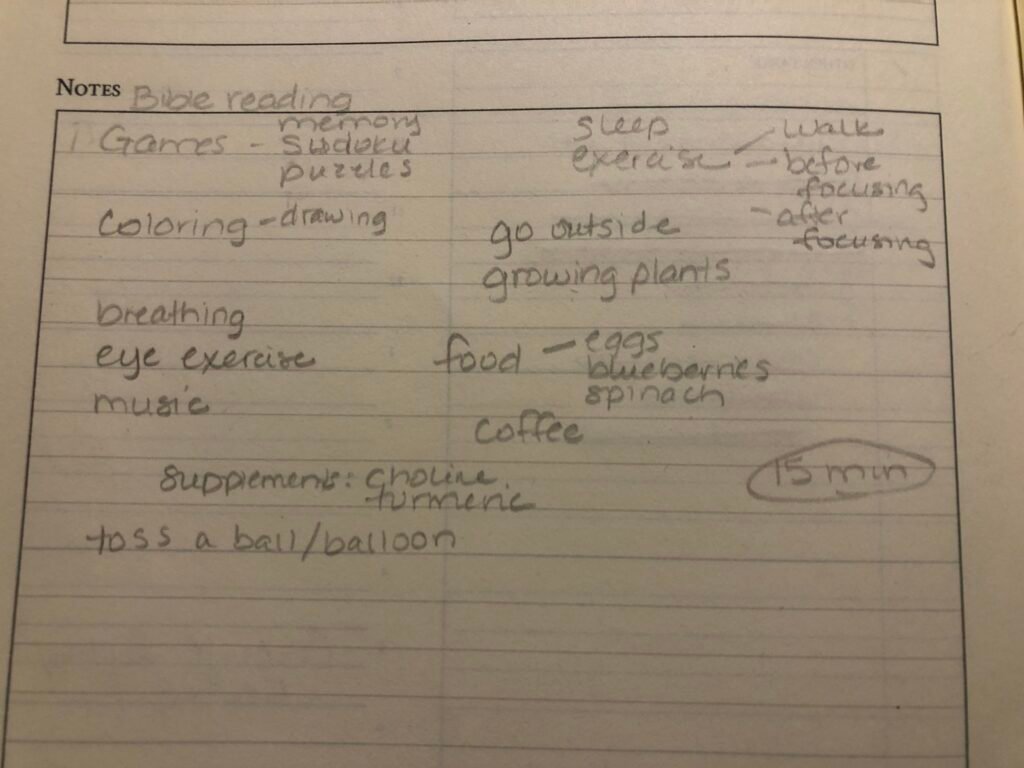 NOTES Bible reading
Games - memory
Sudoku
puzzles
sleep
exercise - walk
- before
focusing
- after
focusing
Coloring - drawing
go outside
growing plants
breathing
eye exercise
music
food - eggs
blueberries
spinach
Coffee
15 min
Supplements: Choline,
turmeric
toss a ball/balloon